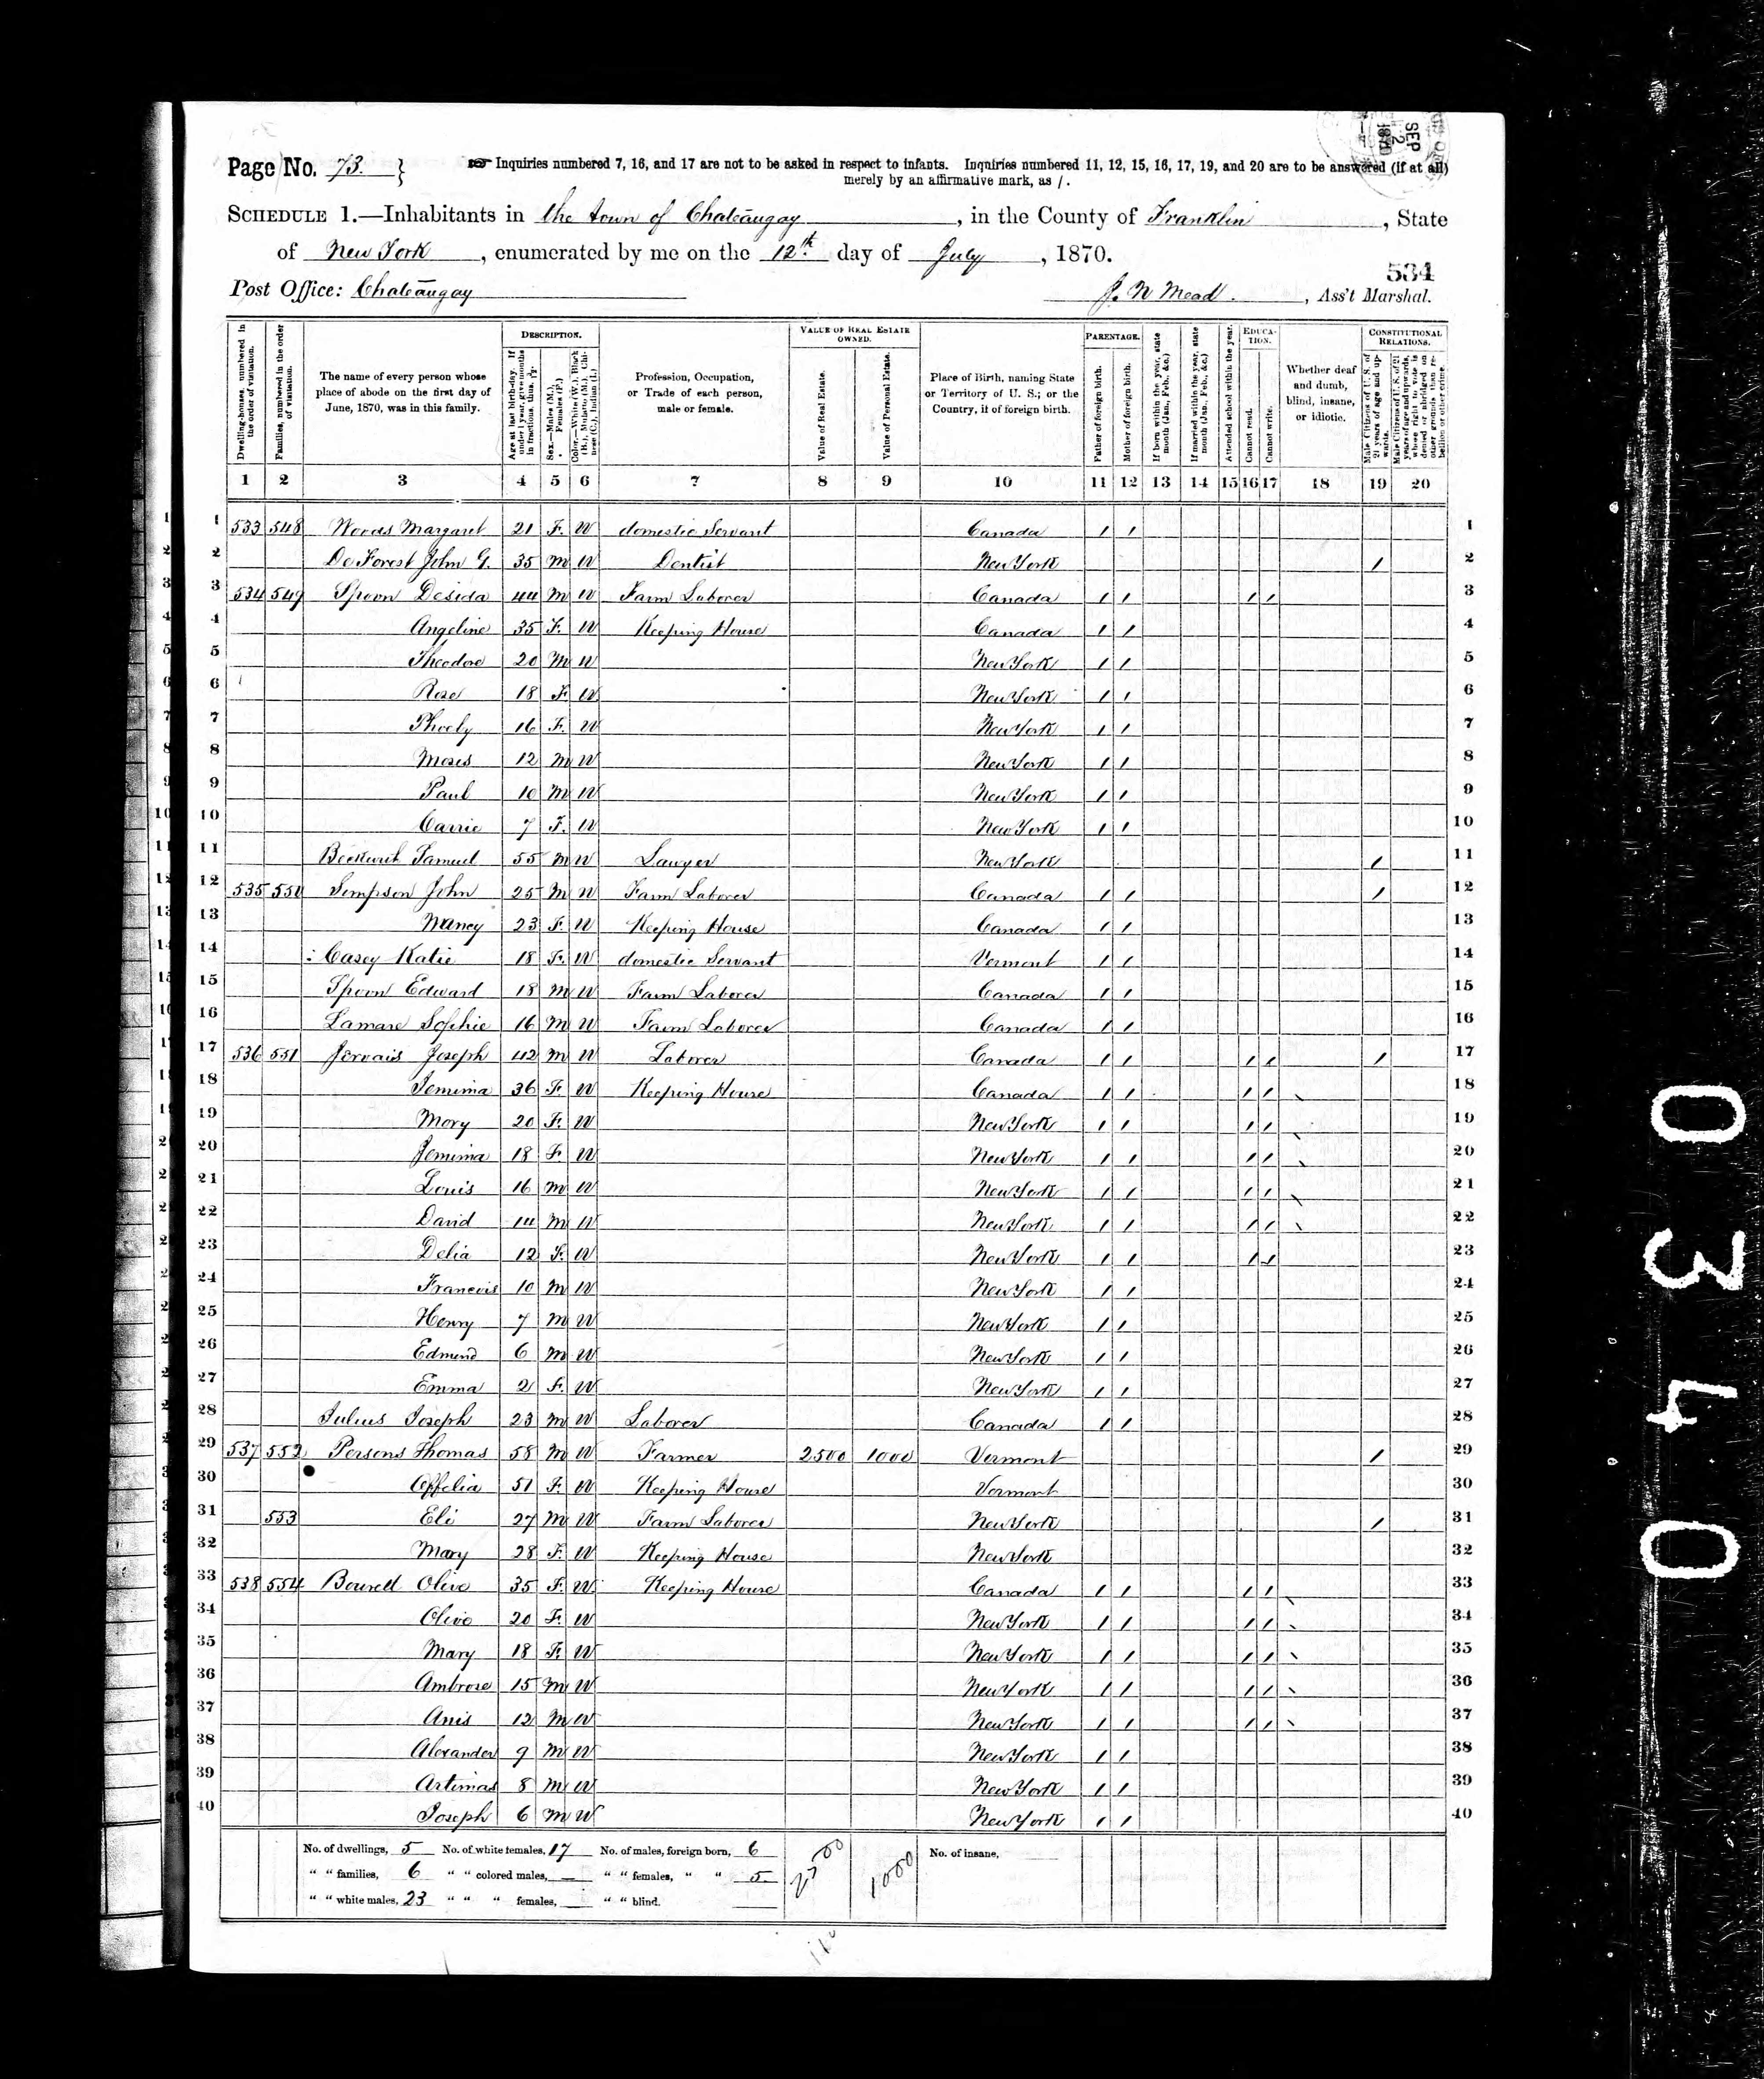 SEP 2 1870
Page No. 73. } Inquiries numbered 7, 16, and 17 are not to be asked in respect to infants. Inquiries numbered 11, 12, 15, 16, 17, 19, and 20 are to be answered (if at all)
merely by an affirmative mark, as /.
SCHEDULE 1.—Inhabitants in the town of Chateaugay, in the County of Franklin, State
of New York, enumerated by me on the 12th day of July, 1870.
534
Post Office: Chateaugay J. N Mead., Ass't Marshal.
Dwelling-houses, numbered in the order of visitation.
Families, numbered in the order of visitation.
The name of every person whose place of abode on the first day of June, 1870, was in this family.
DESCRIPTION.
Age at last birth-day. If under 1 year, give months in fractions, thus,
Sex.—Males (M.), Females (F.)
Color.—White (W.), Black (B.), Mulatto (M.), Chinese (C.), Indian (I.)
Profession, Occupation, or Trade of each person, male or female.
VALUE OF REAL ESTATE OWNED.
Value of Real Estate.
Value of Personal Estate.
Place of Birth, naming State or Territory of U. S.; or the Country, if of foreign birth.
PARENTAGE.
Father of foreign birth.
Mother of foreign birth.
If born within the year, state month (Jan., Feb., &c.)
If married within the year, state month (Jan., Feb., &c.)
Attended school within the year.
EDUCATION.
Cannot read.
Cannot write.
Whether deaf and dumb, blind, insane, or idiotic.
CONSTITUTIONAL RELATIONS.
Male Citizens of U. S. of 21 years of age and upwards.
Male Citizens of U. S. of 21 years of age and upwards, whose right to vote is denied or abridged on other grounds than rebellion or other crime.
1 2 3 4 5 6 7 8 9 10 11 12 13 14 15 16 17 18 19 20
1 533 548 Woods Margaret 21 F. W domestic Servant Canada / / 1
2 De Forest John G. 35 M W Dentist New York / 2
3 534 549 Spoon Desida 44 M W Farm Laborer Canada / / / / 3
4 Angeline 35 F. W Keeping House Canada / / 4
5 Theodore 20 M W New York / / 5
6 Rose 18 F. W New York / / 6
7 Phoely 16 F. W New York / / 7
8 Moses 12 M W New York / / 8
9 Paul 10 M W New York / / 9
10 Carrie 7 F. W New York / / 10
11 Samuel 55 M W Lawyer New York / 11
12 535 550 Simpson John 25 M W Farm Laborer Canada / / / 12
13 Nancy 23 F. W Keeping House Canada / / 13
14 Casey Katie 18 F. W domestic Servant Vermont / / 14
15 Spoon Edward 18 M W Farm Laborer Canada / / 15
16 Lamare Sophie 16 M W Farm Laborer Canada / / 16
17 536 551 Jervais Joseph 42 M W Laborer Canada / / / / / 17
18 Jemima 36 F. W Keeping House Canada / / / / 18
19 Mary 20 F. W New York / / / / 19
20 Jemima 18 F. W New York / / / / 20
21 Louis 16 M W New York / / / / 21
22 David 14 M W New York / / / / 22
23 Delia 12 F. W New York / / / / 23
24 Francois 10 M W New York / / 24
25 Henry 7 M W New York / / 25
26 Edmund 6 M W New York / / 26
27 Emma 2 F. W New York / / 27
28 Julius Joseph 23 M W Laborer Canada / / 28
29 537 552 Persons Thomas 58 M W Farmer 2500 1000 Vermont / 29
30 Offelia 51 F. W Keeping House Vermont 30
31 553 Eli 27 M W Farm Laborer New York / 31
32 Mary 28 F. W Keeping House New York 32
33 538 554 Bowell Olive 35 F. W Keeping House Canada / / / / 33
34 Olive 20 F. W New York / / / / 34
35 Mary 18 F. W New York / / / / 35
36 Ambrose 15 M W New York / / / / 36
37 Anis 12 M W New York / / / / 37
38 Alexander 9 M W New York / / 38
39 Artimas 8 M W New York / / 39
40 Joseph 6 M W New York / / 40
No. of dwellings, 5 No. of white females, 17 No. of males, foreign born, 6 2500 1000 No. of insane,
" " families, 6 " " colored males, — " " females, " " 5
" " white males, 23 " " " females, " " blind.
0340